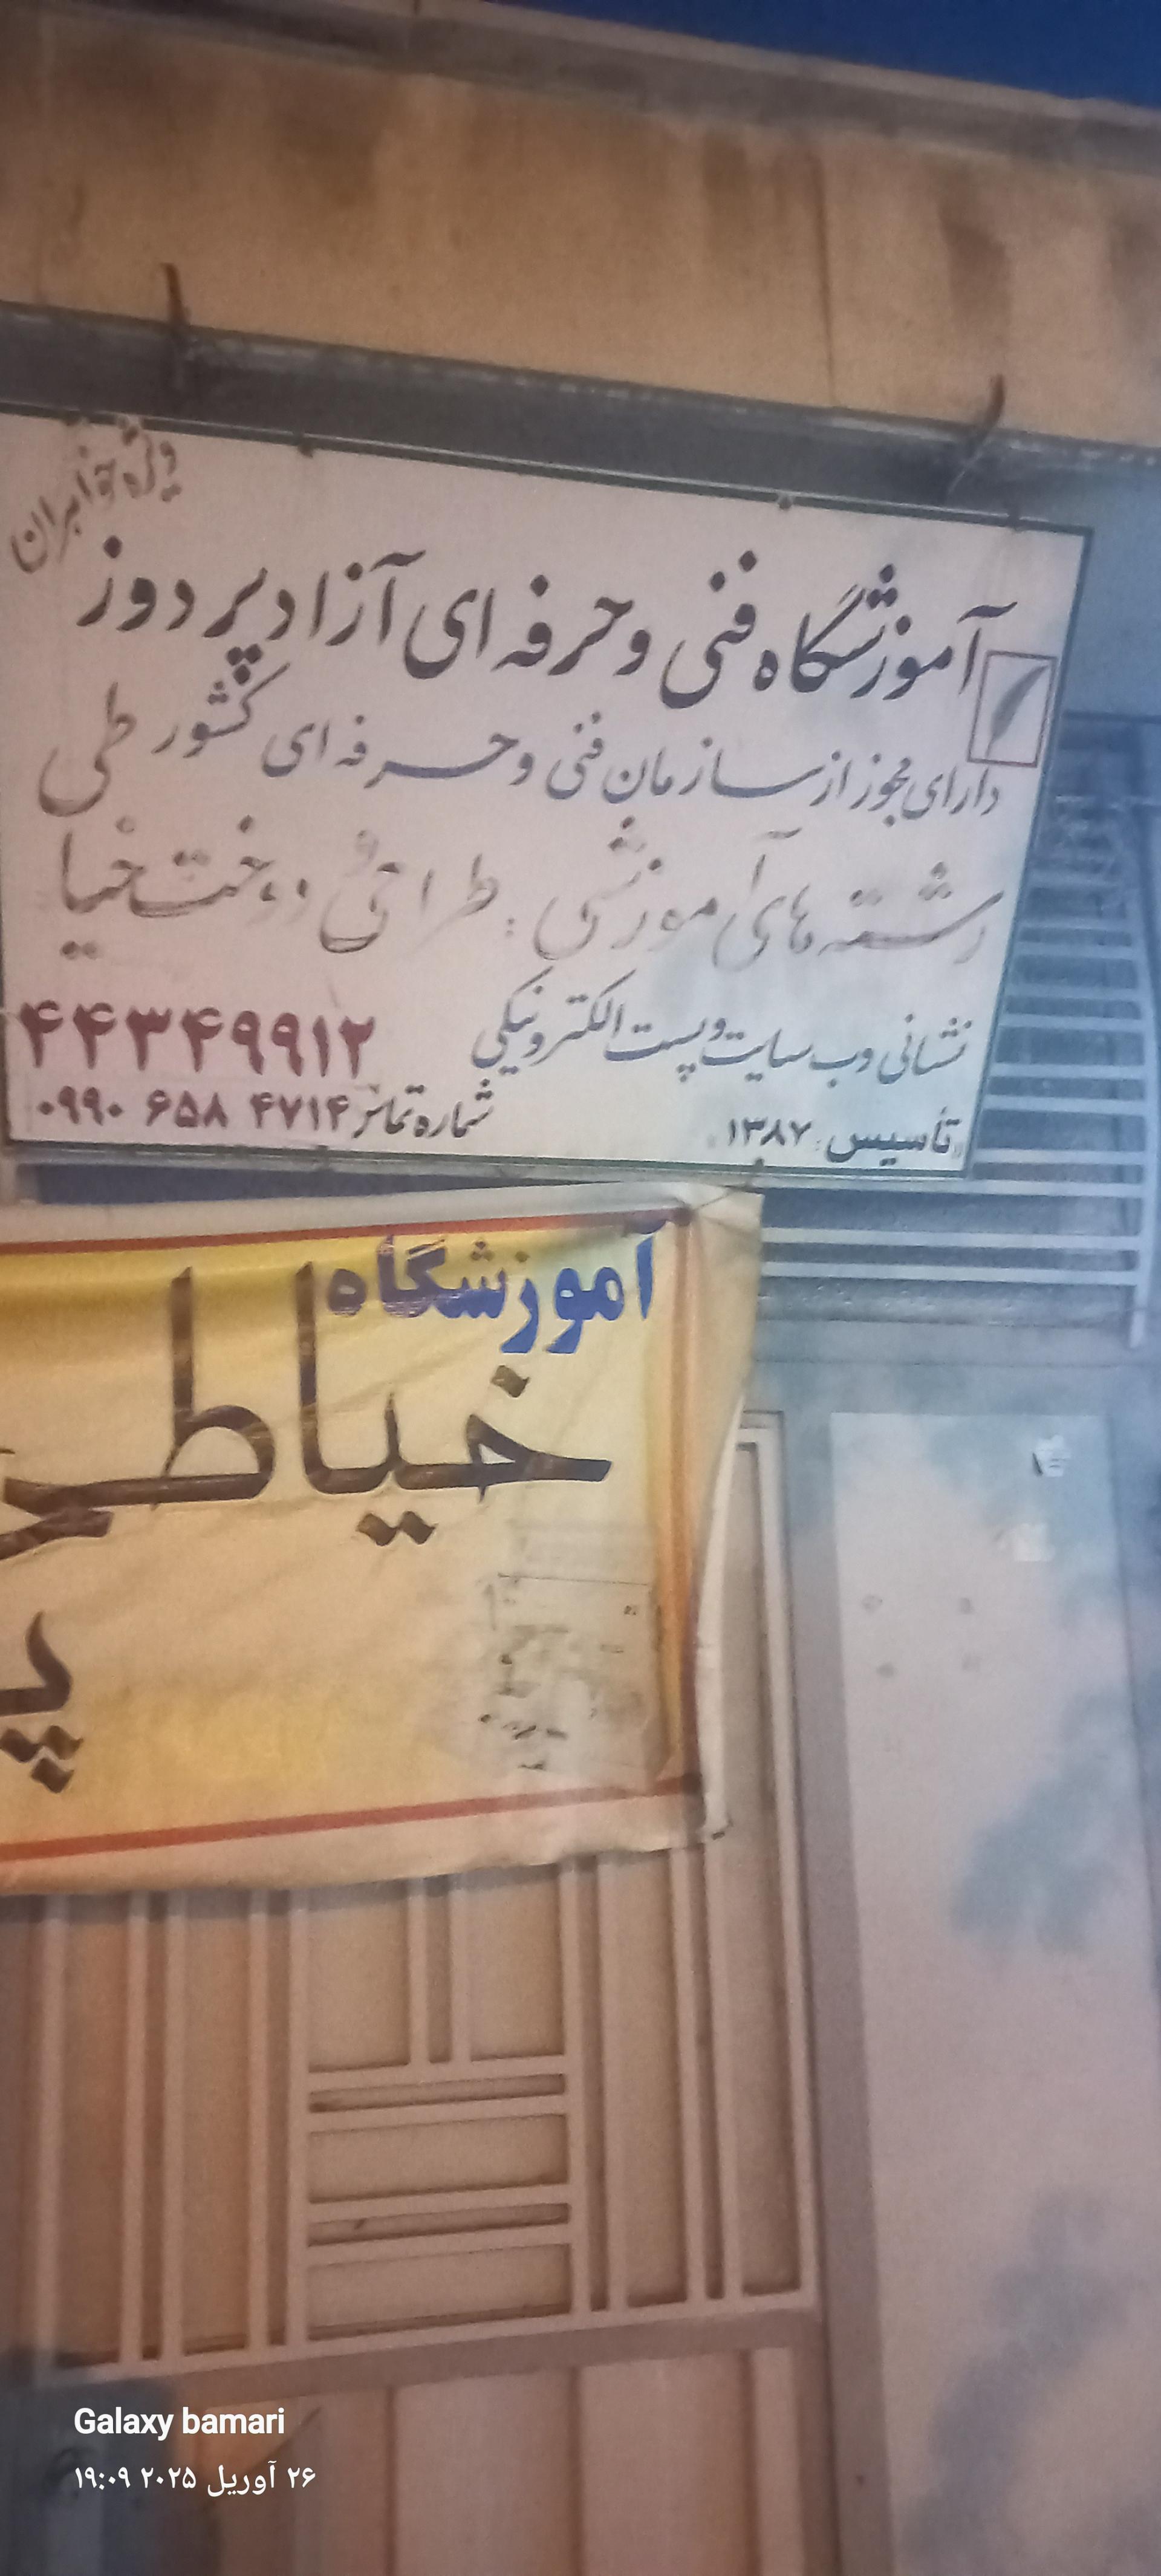 ویژه خواهران
آموزشگاه فنی و حرفه ای آزاد پر دوز
دارای مجوز از سازمان فنی و حرفه ای کشور طی
رشته های آموزشی : طراحی و دوخت خیا
نشانی وب سایت و پست الکترونیکی
۴۴۳۴۹۹۱۲
شماره تماس ۰۹۹۰ ۶۵۸ ۴۷۱۴
تأسیس : ۱۳۸۷
آموزشگاه
خیاطی
پ
Galaxy bamari
۲۶ آوریل ۲۰۲۵ ۱۹:۰۹